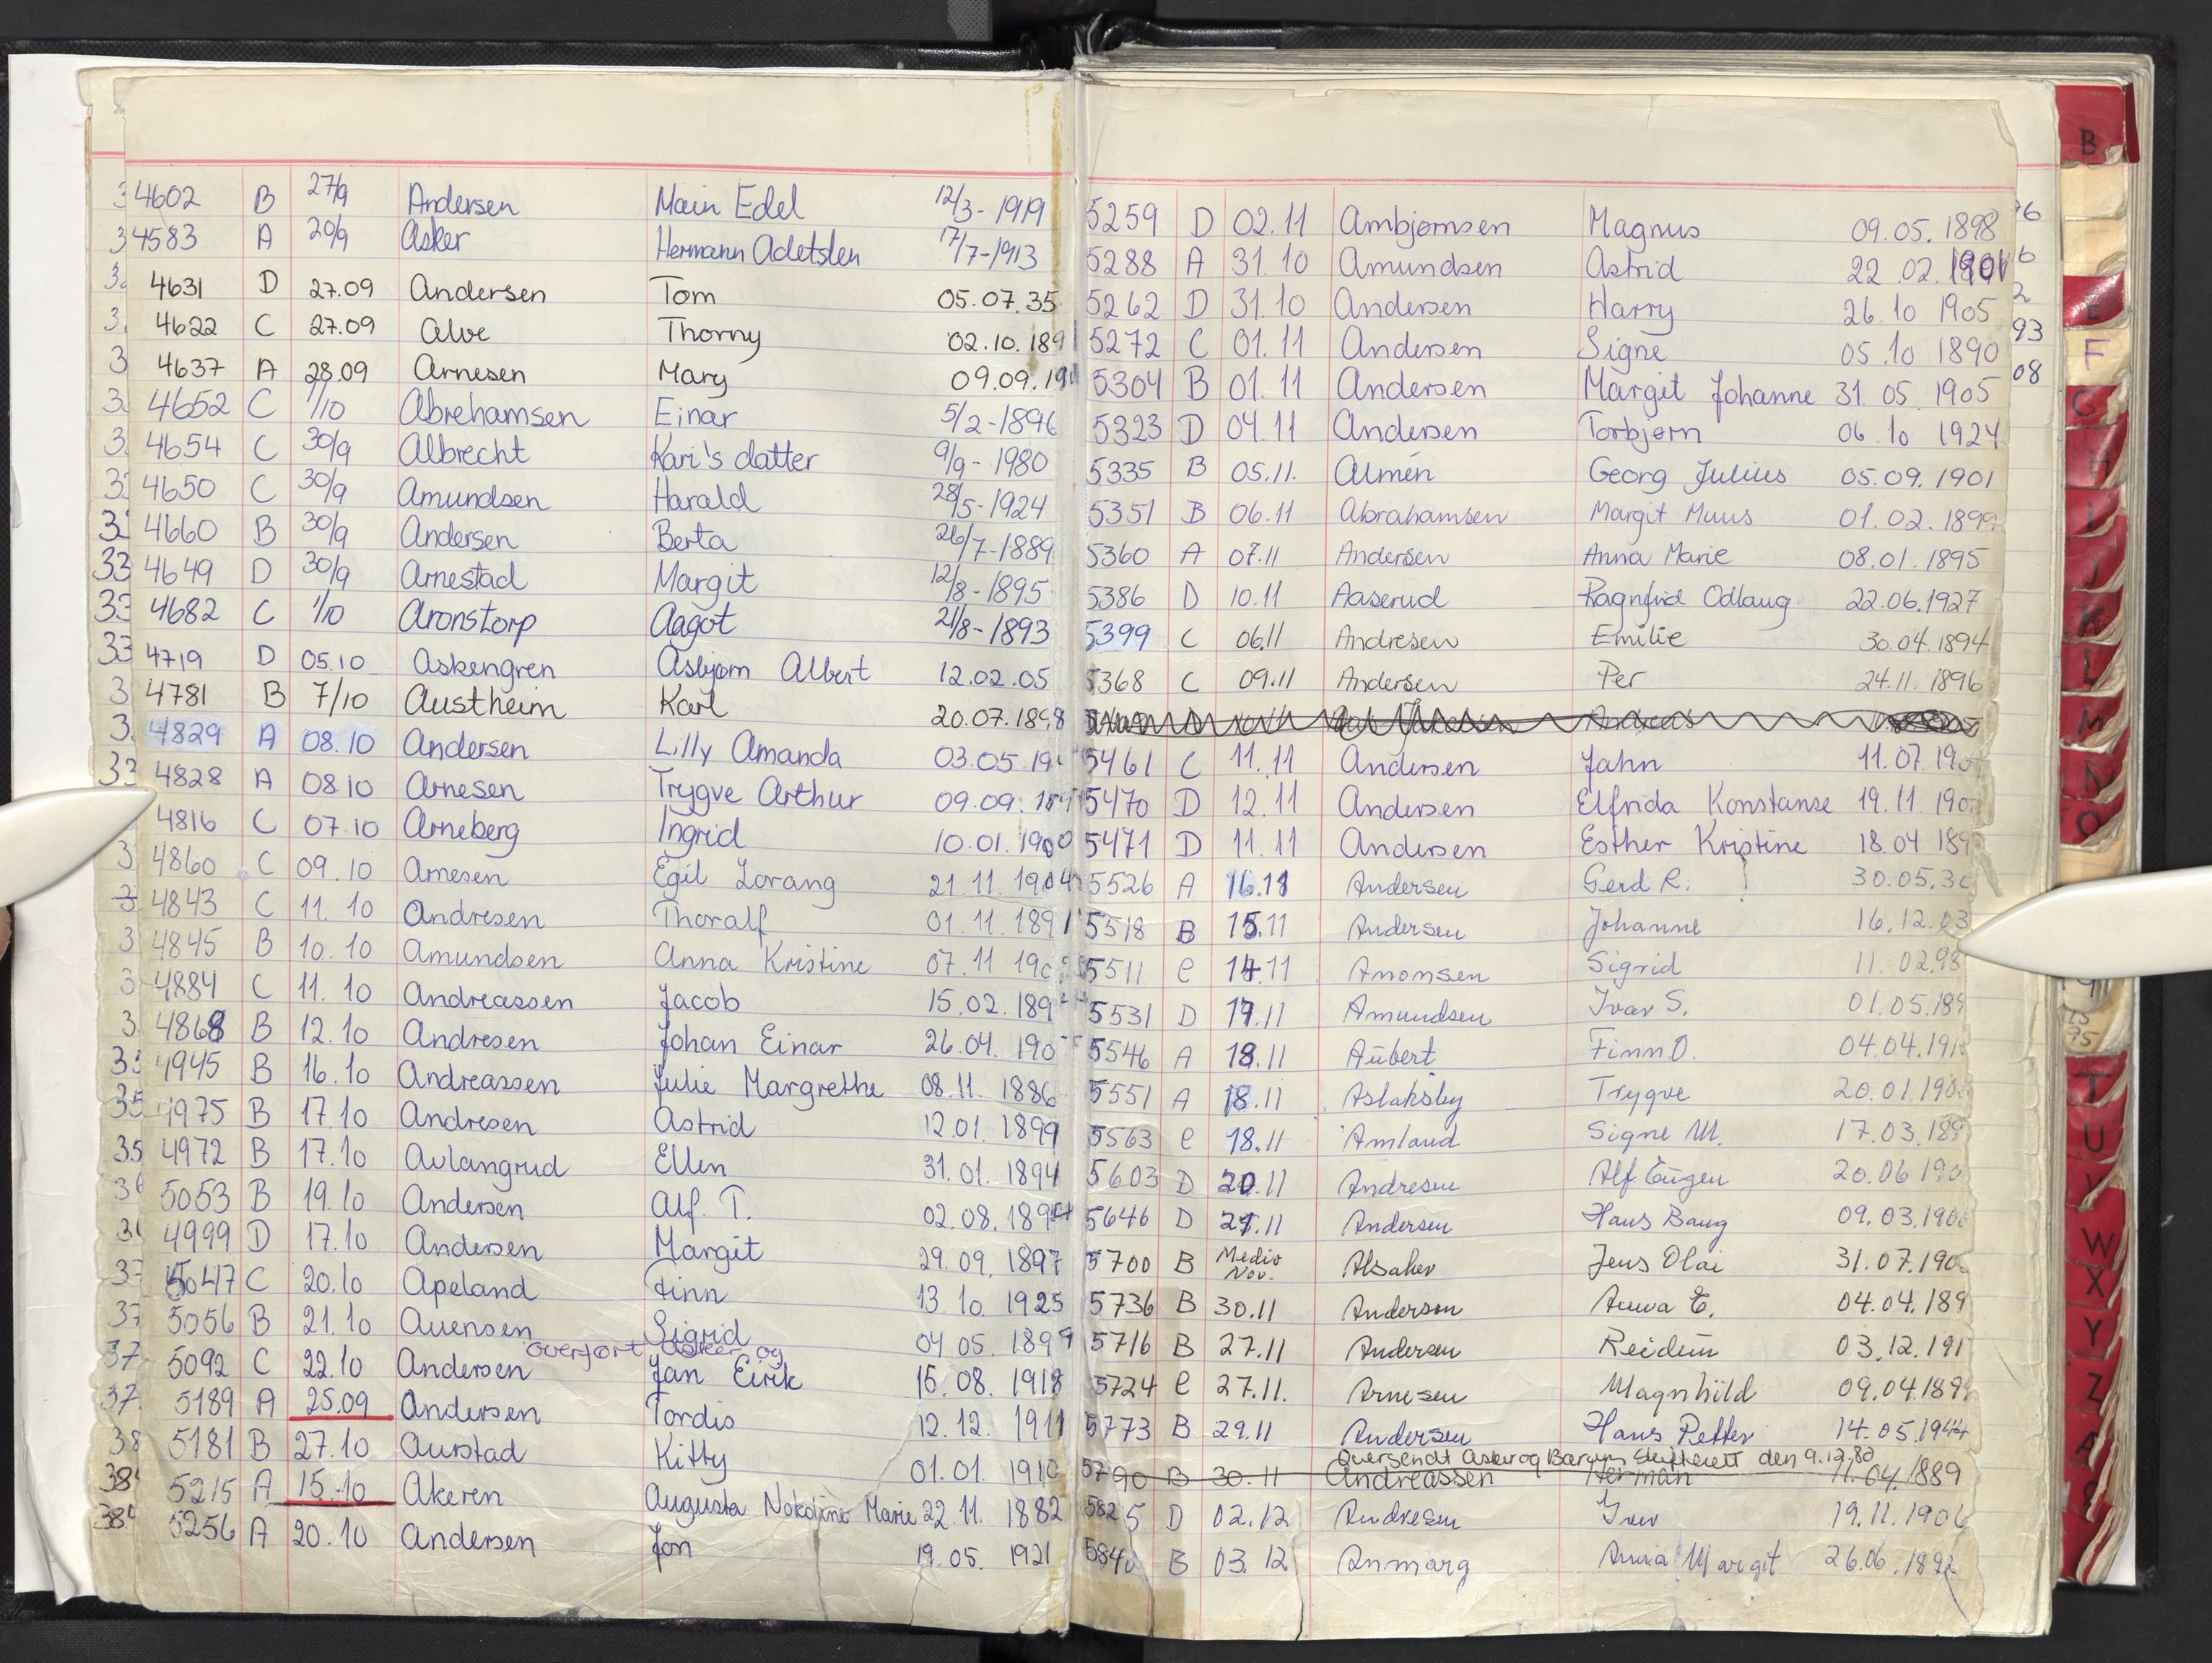 4602 B 27/9 Andersen Main Edel 12/3-1919
4583 A 20/9 Asker Hermann Adetslen 17/7-1913
4631 D 27.09 Andersen Tom 05.07.35
4622 C 27.09 Alve Thorny 02.10.189
4637 A 28.09 Arnesen Mary 09.09.19
4652 C 1/10 Abrehamsen Einar 5/2-1896
4654 C 30/9 Albrecht Kari's datter 9/9-1980
4650 C 30/9 Amundsen Harald 28/5-1924
4660 B 30/9 Andersen Berta 26/7-1889
4649 D 30/9 Arnestad Margit 12/8-1895
4682 C 1/10 Aronstorp Aagot 21/8-1893
4719 D 05.10 Askengren Asbjørn Albert 12.02.05
4781 B 7/10 Austheim Karl 20.07.1898
4829 A 08.10 Andersen Lilly Amanda 03.05.19
4828 A 08.10 Arnesen Trygve Arthur 09.09.
4816 C 07.10 Arneberg Ingrid 10.01.1900
4860 C 09.10 Arnesen Egil Lorang 21.11.1904
4843 C 11.10 Andresen Thoralf 01.11.1891
4845 B 10.10 Amundsen Anna Kristine 07.11 190
4884 C 11.10 Andreassen Jacob 15.02.189
4868 B 12.10 Andresen Johan Einar 26.04.190
4945 B 16.10 Andreassen Julie Margrethe 08.11.1886
4975 B 17.10 Andresen Astrid 12.01.1899
4972 B 17.10 Aulangrud Ellen 31.01.1894
5053 B 19.10 Andersen Alf. T. 02.08.189
4999 D 17.10 Andersen Margit 29.09.1897
5047 C 20.10 Apeland Finn 13.10.1925
5056 B 21.10 Auensen Sigrid 04.05.1899
overført Asker og
5092 C 22.10 Andersen Jan Eirik 15.08.1918
5189 A 25.09 Andersen Tordis 12.12.1911
5181 B 27.10 Aurstad Kitty 01.01.1910
5215 A 15.10 Akeren Augusta Marie 22.11.1882
5256 A 20.10 Andersen Jon 19.05.1921
5259 D 02.11 Ambjørnsen Magnus 09.05.1898
5288 A 31.10 Amundsen Astrid 22.02.1901
5262 D 31.10 Andersen Harry 26.10 1905
5272 C 01.11 Andersen Signe 05.10 1890
5304 B 01.11 Andersen Margit Johanne 31.05.1905
5323 D 04.11 Andersen Torbjørn 06.10 1924
5335 B 05.11. Almén Georg Julius 05.09.1901
5351 B 06.11 Abrahamsen Margit Muus 01.02.1899
5360 A 07.11 Andersen Anna Marie 08.01.1895
5386 D 10.11 Aaserud Ragnfrid Odlaug 22.06.1927
5399 C 06.11 Andresen Emilie 30.04.1894
5368 C 09.11 Andersen Per 24.11.1896
5461 C 11.11 Andersen Jahn 11.07.190
5470 D 12.11 Andersen Elfrida Konstanse 19.11.190
5471 D 11.11 Andersen Esther Kristine 18.04 189
5526 A 16.11 Andersen Gerd R. 30.05.30
5518 B 15.11 Andersen Johanne 16.12.03
5511 C 14.11 Amonsen Sigrid 11.02.98
5531 D 17.11 Amundsen Ivar S. 01.05.189
5546 A 18.11 Aubert Finn O. 04.04.191
5551 A 18.11 Aslaksby Trygve 20.01.190
5563 C 18.11 Amland Signe M. 17.03.189
5603 D 20.11 Andresen Alf Eugen 20.06 190
5646 D 21.11 Andersen Hans Baug 09.03.190
5700 B Medio Nov. Alsaker Jens Olai 31.07.190
5736 B 30.11 Anderson Anna E. 04.04.189
5716 B 27.11 Andersen Reidun 03.12.191
5724 C 27.11. Arnesen Magnhild 09.04.189
5773 B 29.11 Andersen Hans Petter 14.05.1944
Oversendt Asker og Bærum Skifterett den 9.12.80
5790 B 30.11 Andreassen Herman 11.04.1889
5825 D 02.12 Andresen Iver 19.11.1906
5840 B 03.12 Anmarg Anna Margit 26.06.1892
B
E
F
G
H
I
J
K
L
M
N
O
T
U
V
W
X
Y
Z